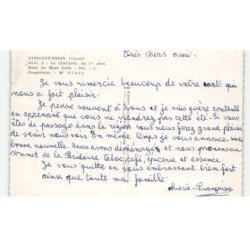 Très chers ami.
Je vous remercie beaucoup de votre carte qui
nous a fait plaisir.
Je pense souvent à vous et je suis guère contente
en apprenant que vous ne viendrez pas cette été. Si vous
êtes de passage dans la region vous nous ferez grand plaisir
de venir nous voir. En même temps je vous annonce une
bonne nouvelle. Nous avons demenagés et nous prenons au
sommet de la Budoire tabac, café, epicerie et essence.
Je vous quitte en vous embrassant bien fort
ainsi que toute ma famille.
Marie-Françoise